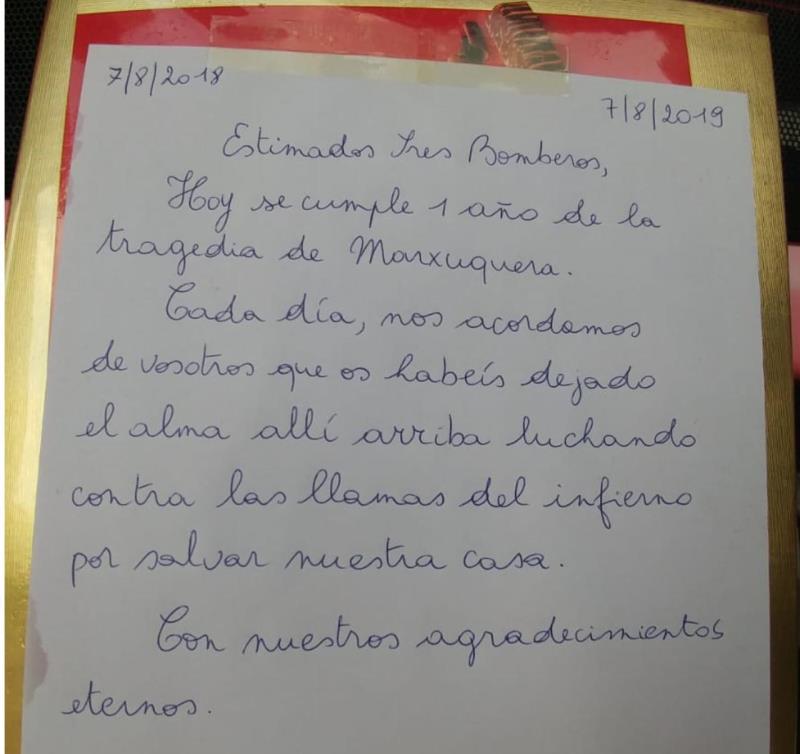 7/8/2018
7/8/2019
Estimados tres Bomberos,
Hoy se cumple 1 año de la
tragedia de Marxuquera.
Cada día, nos acordamos
de vosotros que os habeís dejado
el alma allí arriba luchando
contra las llamas del infierno
por salvar nuestra casa.
Con nuestros agradecimientos
eternos.